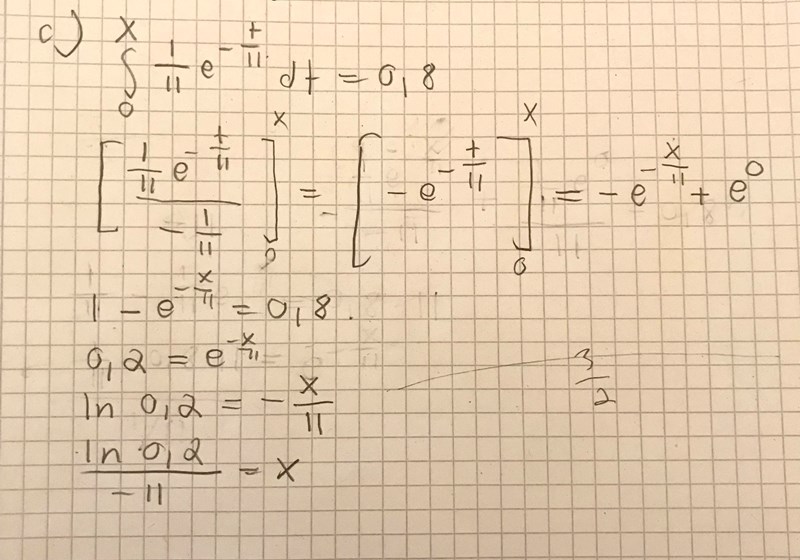 c) ∫₀ˣ 1/11 e^(-t/11) dt = 0,8
[ (1/11 e^(-t/11)) / (-1/11) ]₀ˣ = [ -e^(-t/11) ]₀ˣ = -e^(-x/11) + e⁰
1 - e^(-x/11) = 0,8.
0,2 = e^(-x/11)
ln 0,2 = -x/11
(ln 0,2) / (-11) = x
3/2